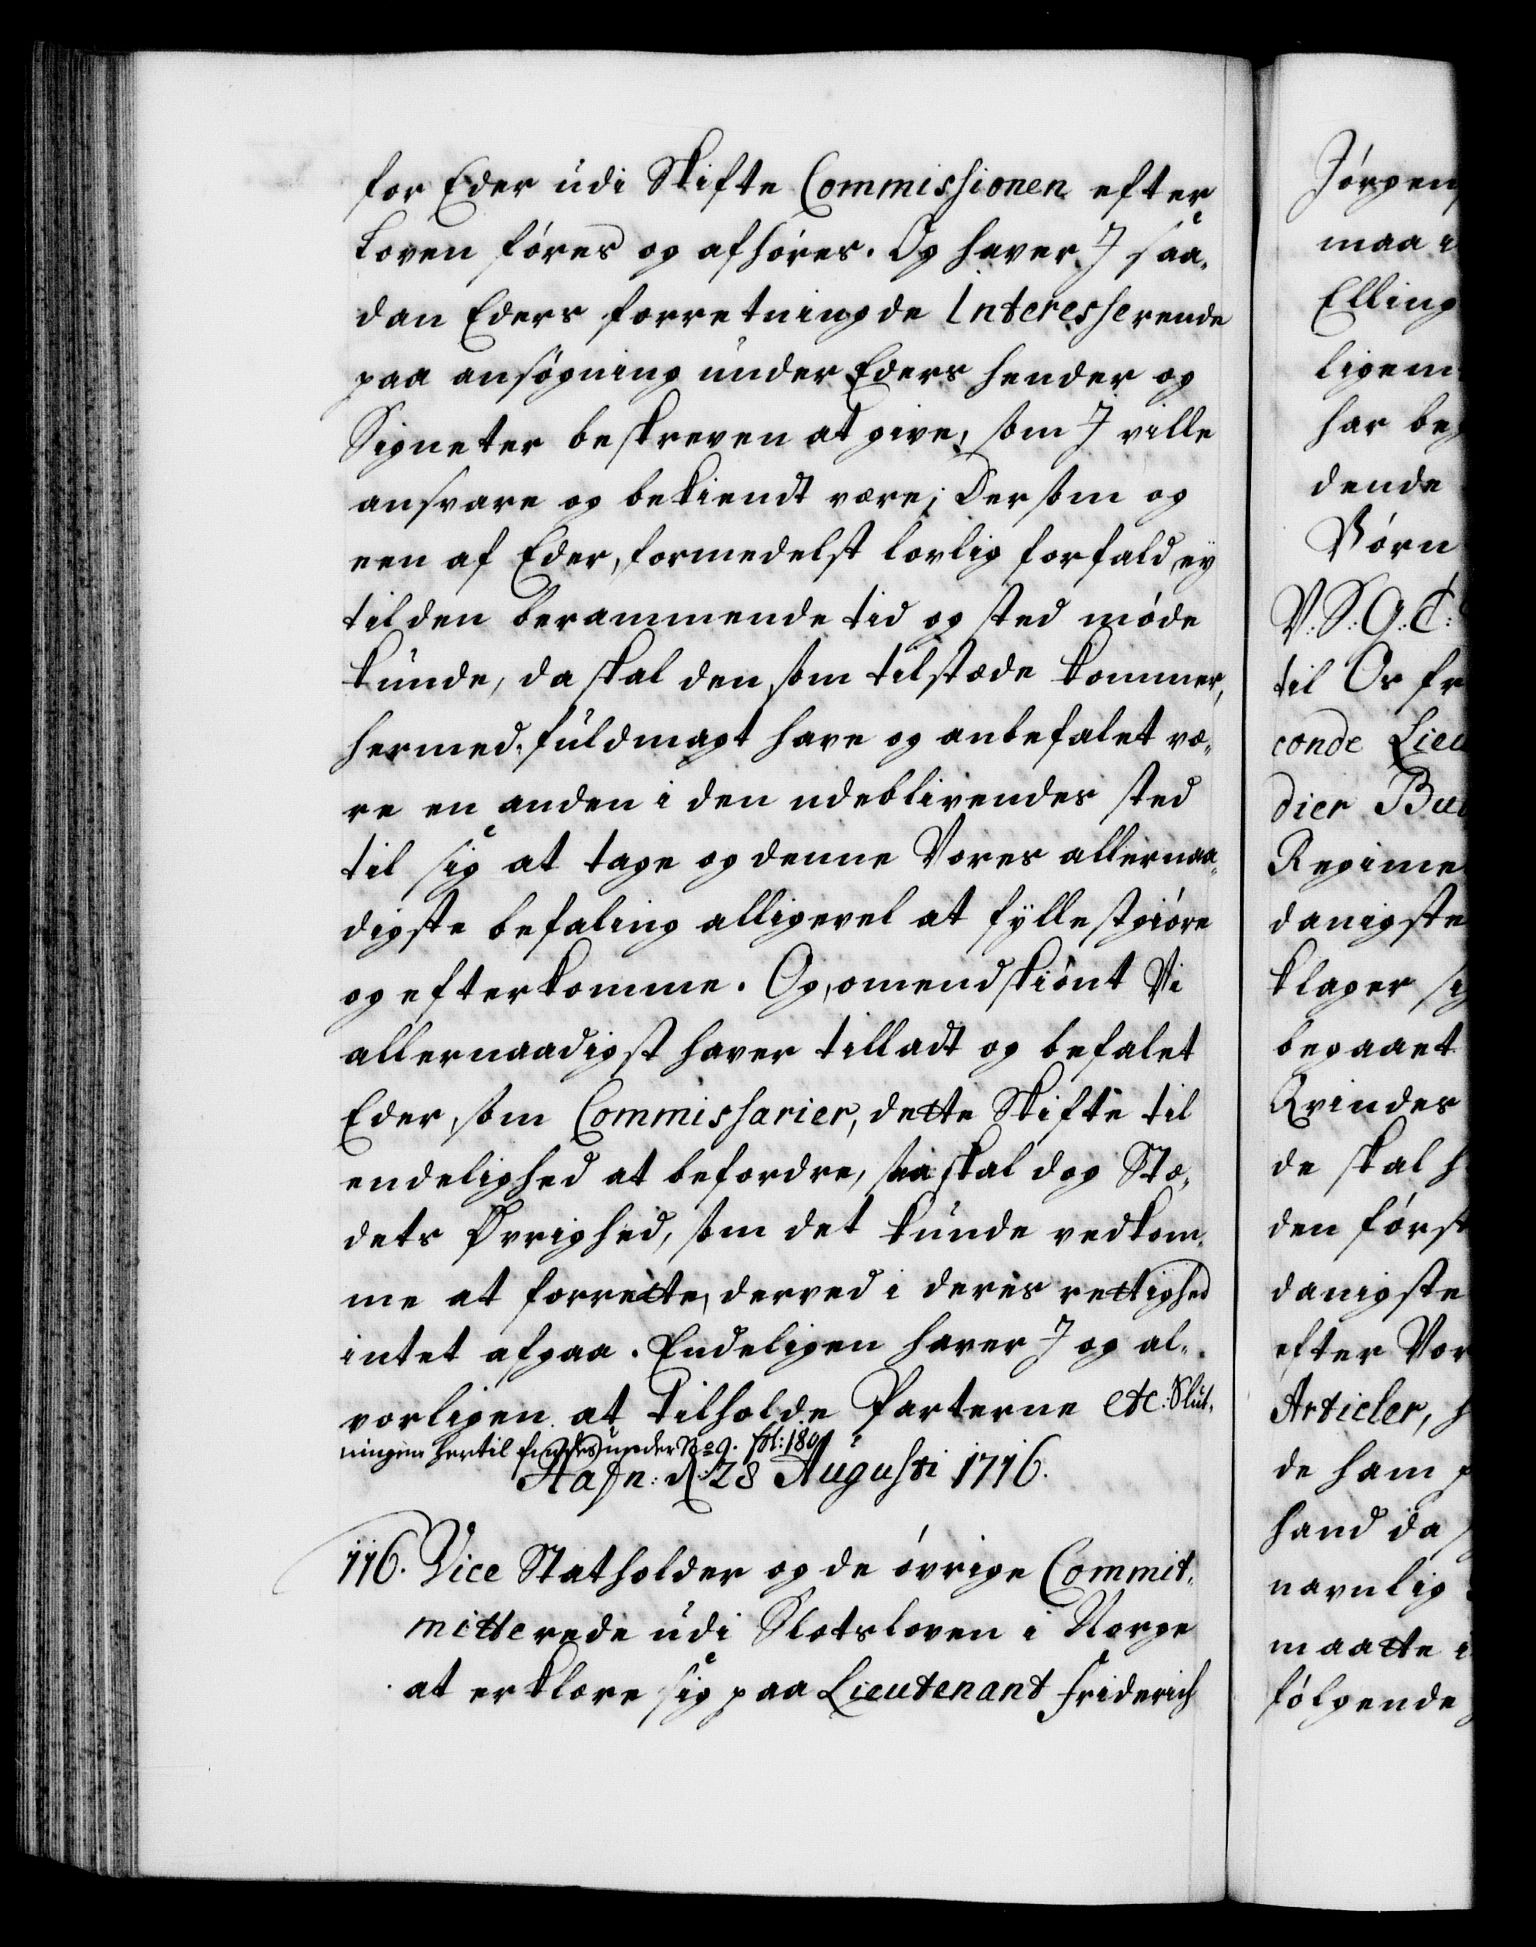 for Eder udi Skifte Commissionen efter
Loven føres og afhøres. Og haver J saa-
dan Eders forretning de Interesserende
paa ansøgning under Eders hender og
Signeter beskreven at give, som J ville
ansvare og bekiendt være; Dersom og
een af Eder, formedelst lovlig forfald, ey
til den berammende tid og sted møde
kunde, da skal den, som tilstæde kommer,
hermed fuldmagt have og anbefalet væ-
re en anden i den udeblivendes sted
til sig at tage og denne Vores allernaa-
digste befaling alligevel at fyllestgiøre
og efterkomme. Og, omendskiønt Vi
allernaadigst haver tilladt og befalet
Eder, som Commissarier, dette Skifte til
endelighed at befordre, saa skal dog Stæ-
dets Øvrighed, som det kunde vedkom-
me at forrette, derved i deres rettighed
intet afgaa. Endeligen haver J og al-
vorligen at tilholde Parterne etc: Slut-
ningen hertil findes under No 9. fol: 180
Hafn: d. 28 Augusti 1716.
116. Vice Statholder og de øvrige Commit-
mitterede udi Slotsloven i Norge
at erklære sig paa Lieutenant Friderich
Jørgen
maa
Elling
ligem
har beg
dende
Børn
V: S: G: T:
til Os fr
conde Lieu
dier Bu
Regime
danigste
klager sig
begaaet
Qvindes
de skal h
den først
danigste
efter Vor
Articler, h
de ham
hand da
navnlig
maatte i
følgende